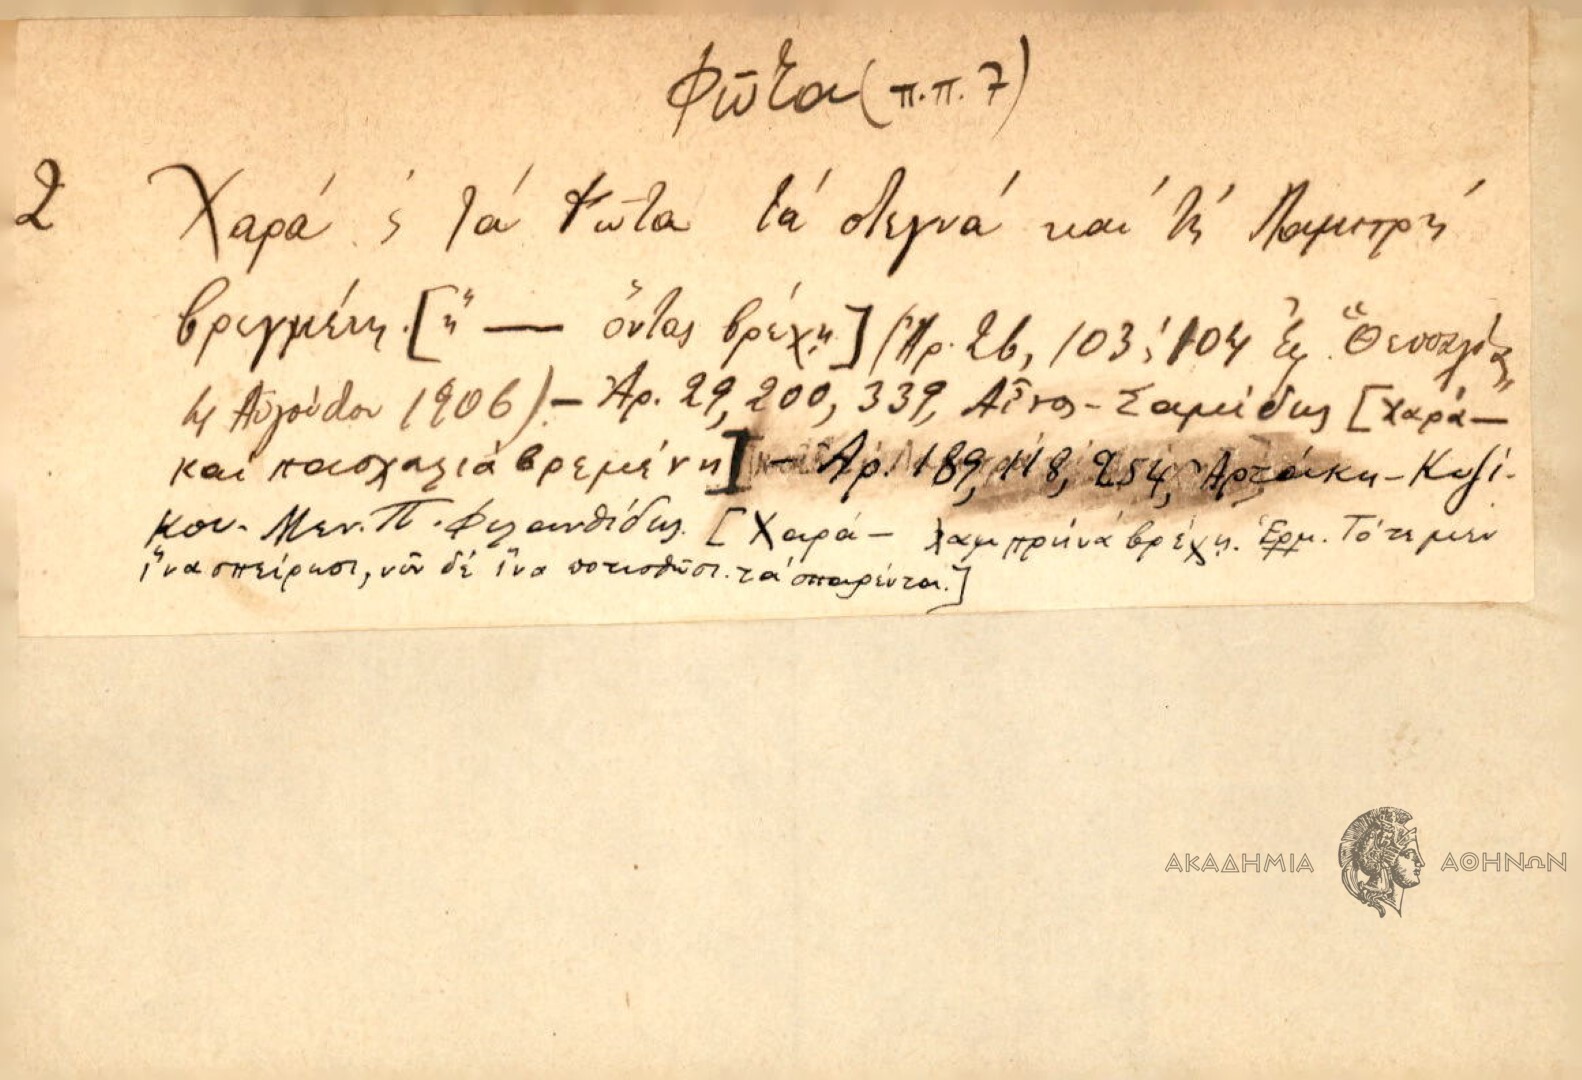 Φῶτα (π.π. 7)
2 Χαρά 'ς τά Φῶτα τά στεγνά και τή Λαμπρή
βρεγμένη. [ἤ — ὄντας βρέχῃ] (Ἀρ. 26, 103, 104 ἐκ "Θεσσαλίας"
τῆς Αὐγούστου 1906). — Ἀρ. 29, 200, 339, Αἶνος - Σαμίδης [χαρά —
και πασχαλιά βρεμένη] — Ἀρ. 189, 118, 254, Ἀρτάκη - Κυζί-
κου - Μεν. Π. Φιλανθίδης. [Χαρά — λαμπρή νά βρέχῃ. Ἑρμ. Τότε μέν
ἵνα σπείρωσι, νῦν δέ ἵνα ποτισθῶσι τά σπαρέντα.]
ΑΚΑΔΗΜΙΑ ΑΘΗΝΩΝ